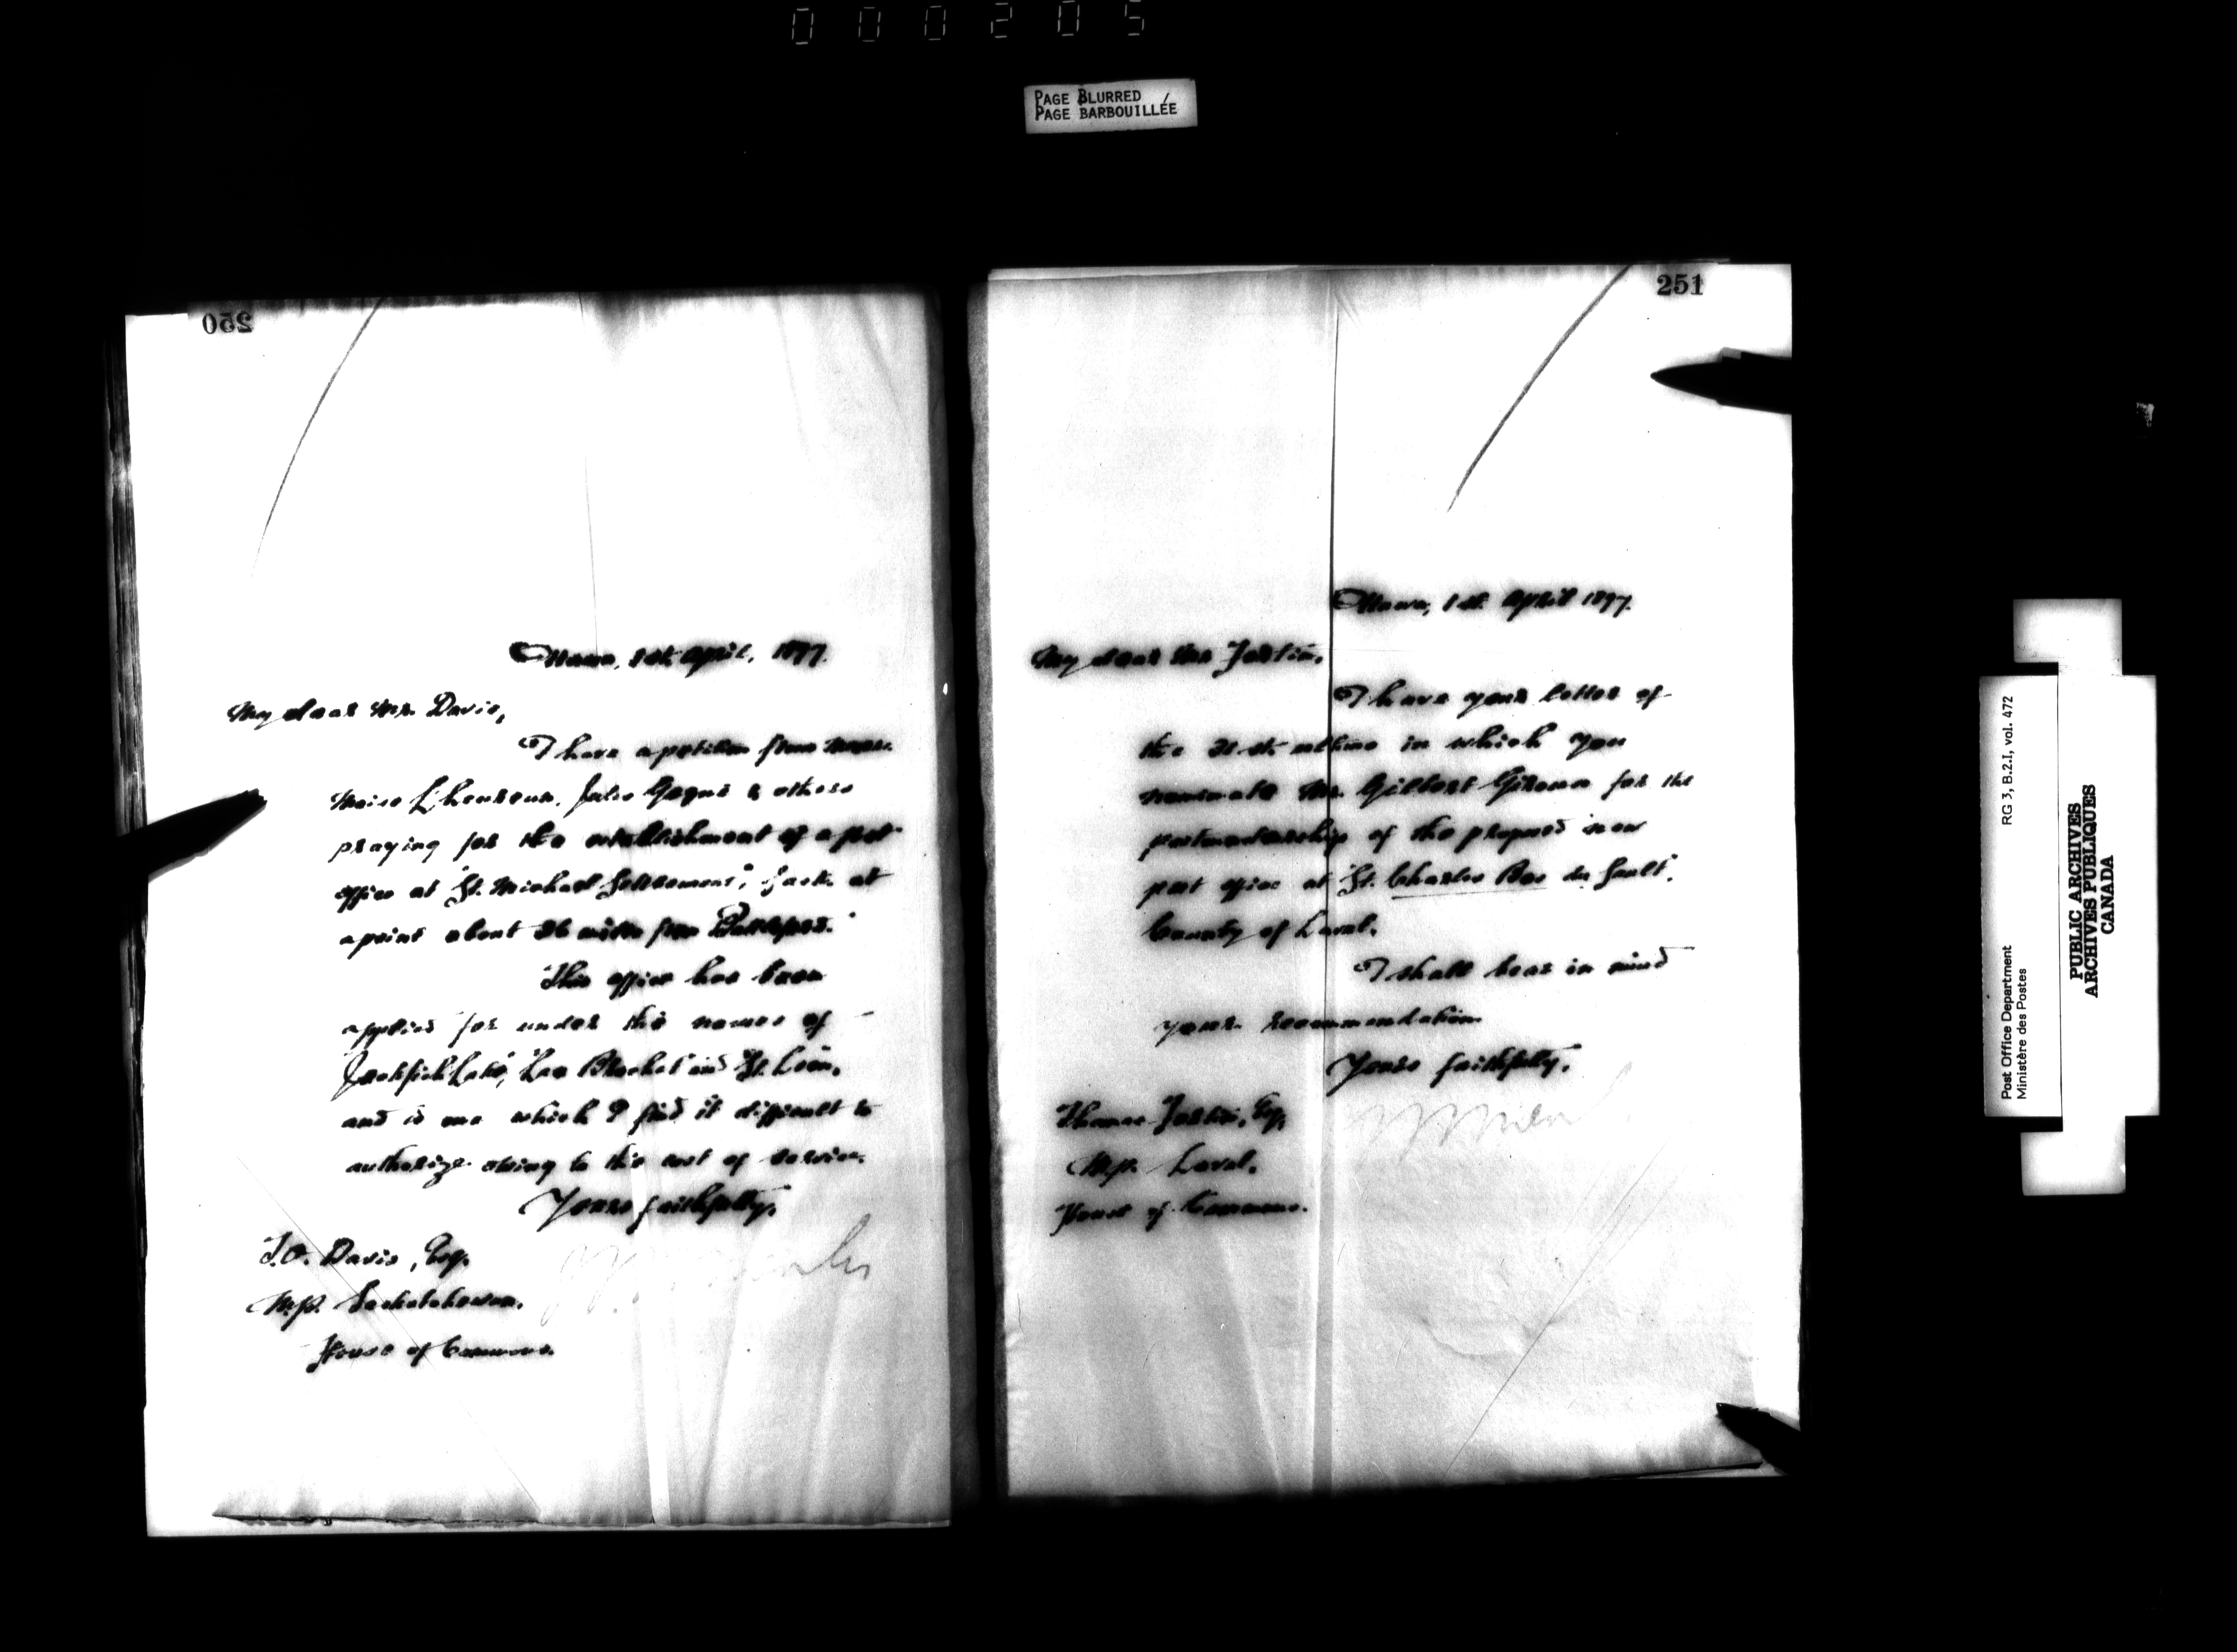 000205
PAGE BLURRED
PAGE BARBOUILLÉE
250
Ottawa, 1st April, 1897.
My dear Mr. Davis,
I have a petition from Messrs.
Moise L'heureux, Jules Gagné & others
praying for the establishment of a post
office at "St. Michael Settlement", Sask. at
a point about 36 miles from Battleford.
This office has been
applied for under the names of
"Jackfish Lake", "Lac Brochet" and "St. Léon",
and is one which I find it difficult to
authorize owing to the cost of service.
Yours faithfully,
T.O. Davis, Esq.
M.P. Saskatchewan.
House of Commons.
251
Ottawa, 1st. April 1897.
My dear Mr Fortin,
I have your letter of
the 31st ultimo in which you
nominate Mr. Gilbert Giroux for the
postmastership of the proposed new
post office at "St. Charles Bas du Sault".
County of Laval.
I shall bear in mind
your recommendation.
Yours faithfully,
Thomas Fortin, Esq,
M.P. Laval.
House of Commons.
Post Office Department
Ministère des Postes
RG 3, B.2.I, vol. 472
PUBLIC ARCHIVES
ARCHIVES PUBLIQUES
CANADA